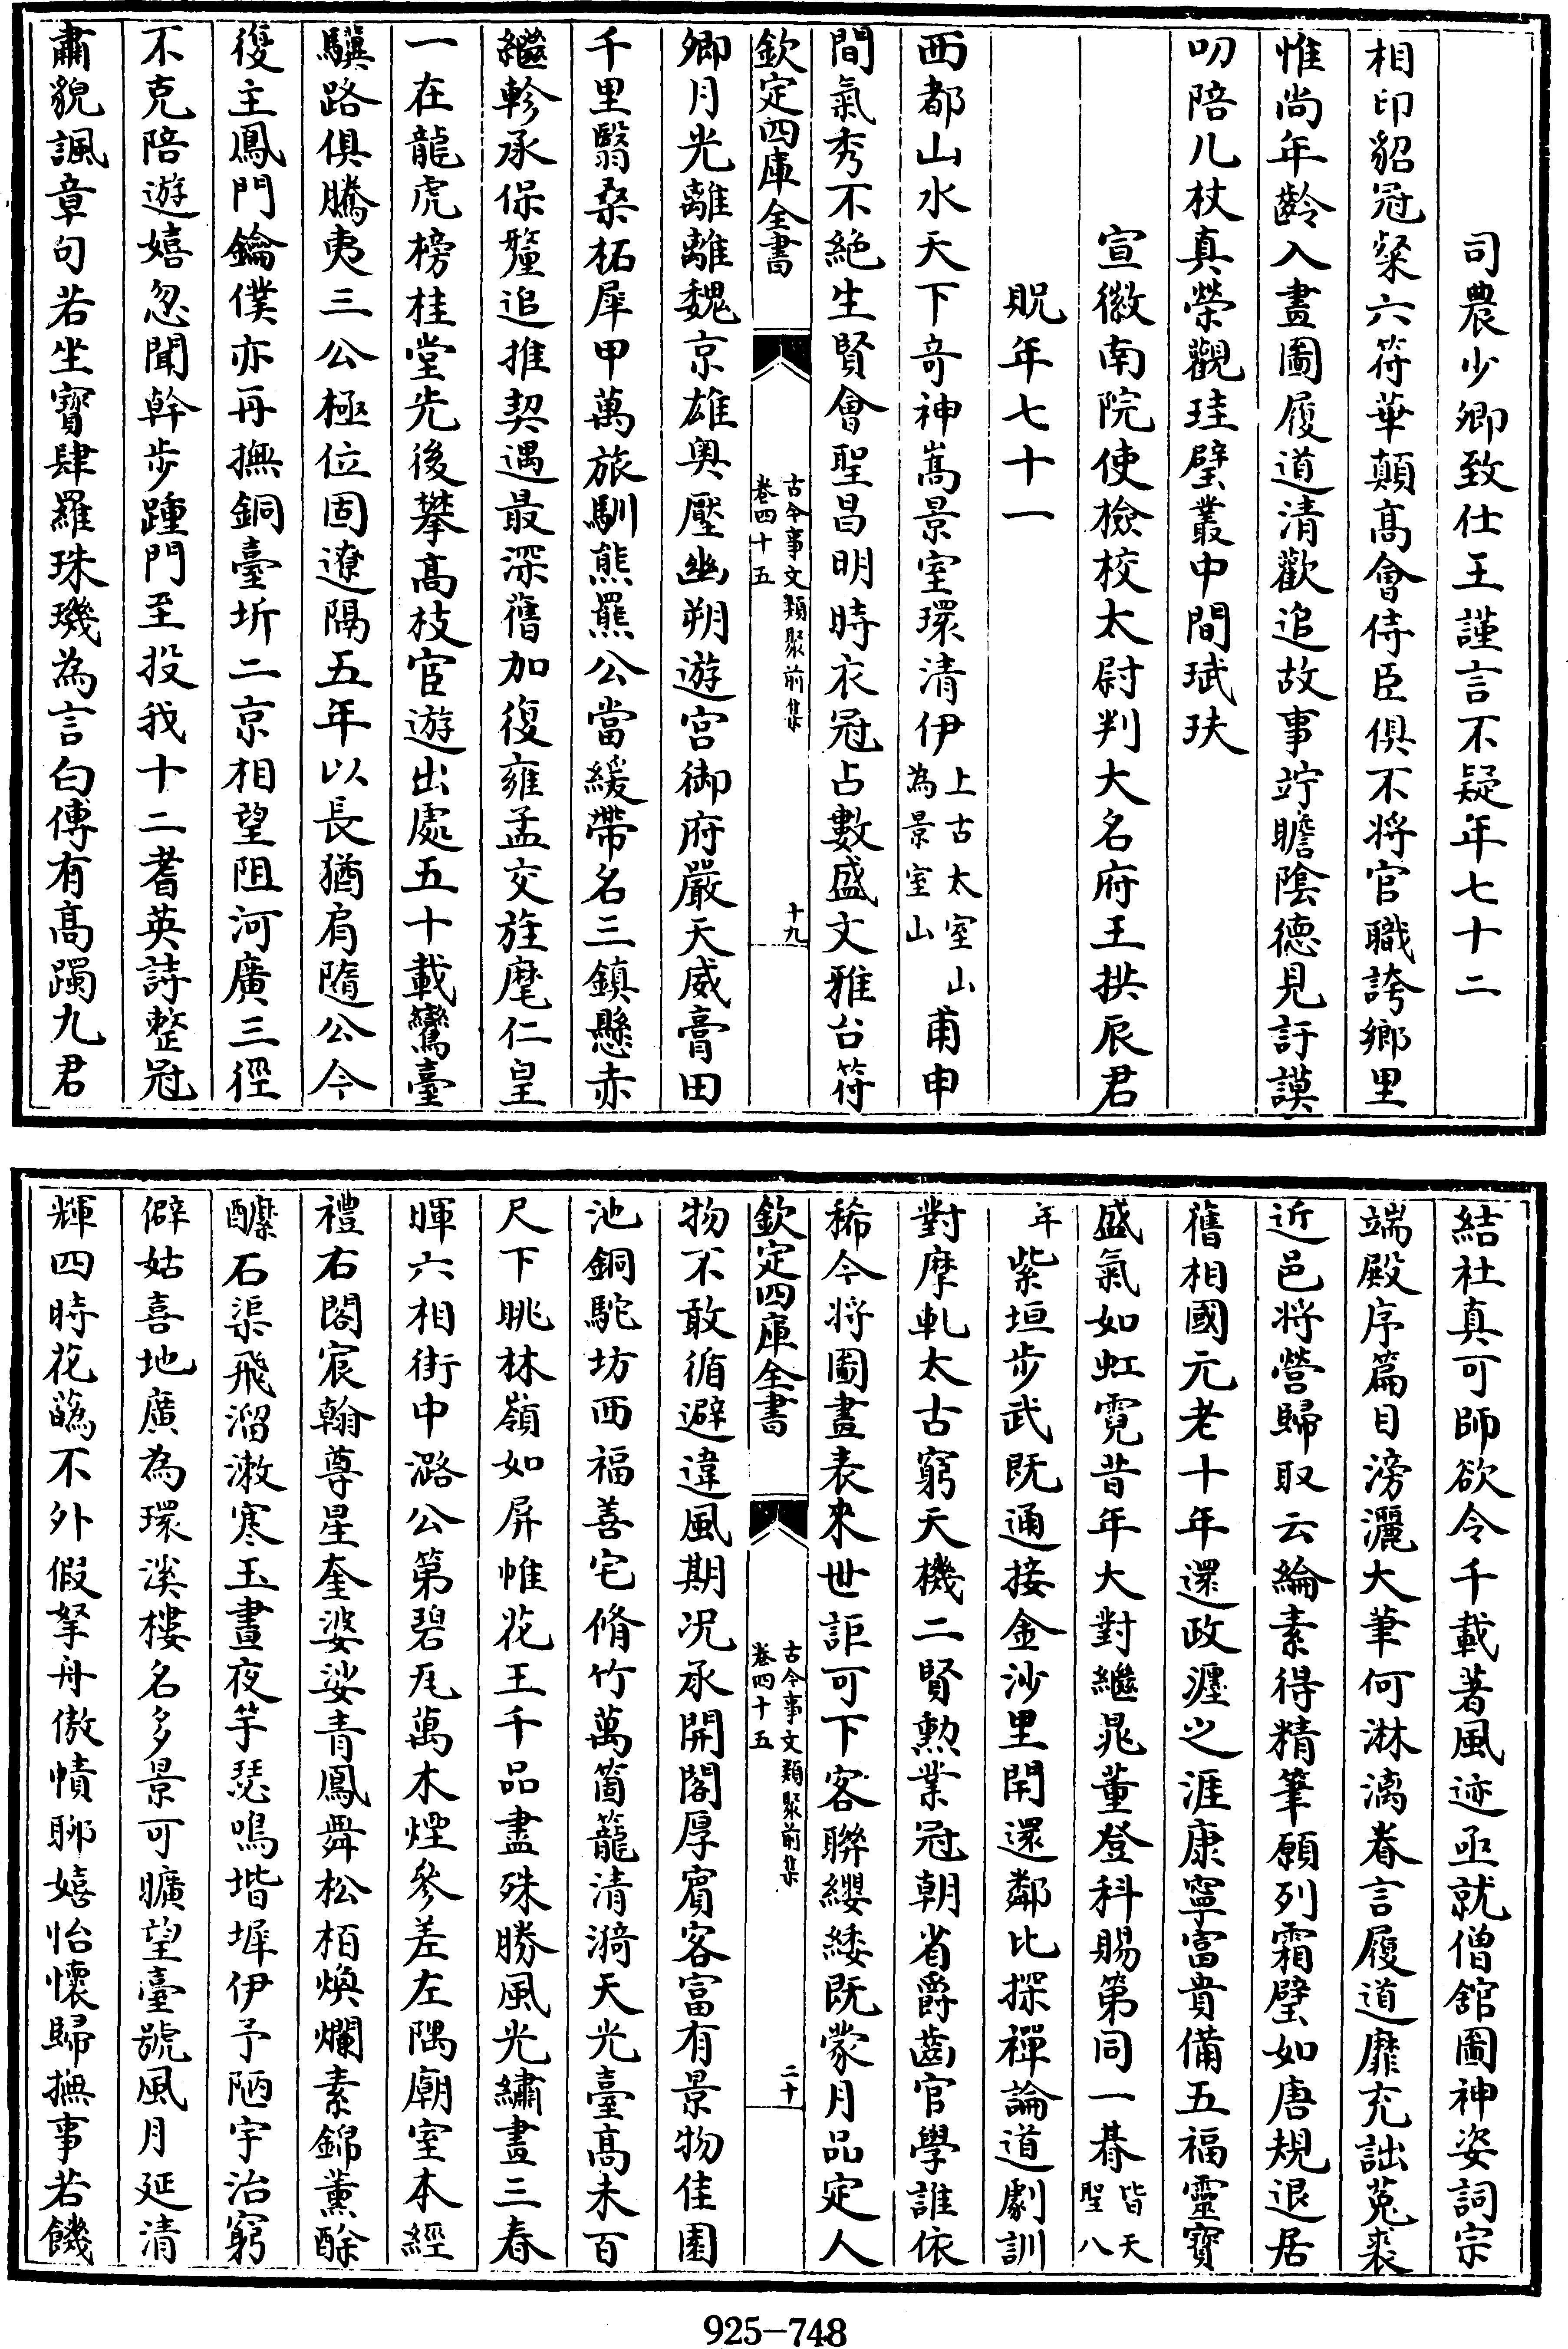 司農少卿致仕王謹言不疑年七十二
相印貂冠粲六符華顛髙會侍臣俱不將官職誇鄉里
惟尚年齡入畫圖履道清歡追故事竚瞻陰德見訏謨
叨陪几杖真榮觀珪璧叢中間珷玞
宣徽南院使檢校太尉判大名府王拱辰君
貺年七十一
西都山水天下竒神嵩景室環清伊上古太室山為景室山甫申
間氣秀不絶生賢會聖昌明時衣冠占數盛文雅台符
欽定四庫全書
古今事文類聚前集
卷四十五
十九
卿月光離離魏京雄奥壓幽朔遊宫御府嚴天威膏田
千里翳桑柘犀甲萬旅馴熊羆公當緩帶名三鎮懸赤
繼軫承保釐追推契遇最深舊加復雍孟交旌麾仁皇
一在龍虎榜桂堂先後攀髙枝宦遊出處五十載鸞臺
驥路俱騰夷三公極位固遼隔五年以長猶肩隨公今
復主鳳門鑰僕亦再撫銅臺圻二京相望阻河廣三徑
不克陪遊嬉忽聞幹步踵門至投我十二耆英詩整冠
肅貌諷章句若坐寳肆羅珠璣為言白傅有髙躅九君
結社真可師欲令千載著風迹亟就僧舘圖神姿詞宗
端殿序篇目滂灑大筆何淋漓眷言履道靡充詘菟裘
近邑將營歸取云綸素得精筆願列霜璧如唐規退居
舊相國元老十年還政瀍之涯康寧富貴備五福靈寳
盛氣如虹霓昔年大對繼晁董登科賜第同一朞皆天聖八
年紫垣步武既通接金沙里閈還鄰比探禪論道劇訓
對摩軋太古窮天機二賢勲業冠朝省爵齒官學誰依
稀今將圖畫表來世詎可下客聯纓緌既蒙月品定人
欽定四庫全書
古今事文類聚前集
卷四十五
二十
物不敢循避違風期况承開閣厚賓客富有景物佳園
池銅駝坊西福善宅脩竹萬箇籠清漪天光臺髙未百
尺下眺林嶺如屏帷花王千品盡殊勝風光繡畫三春
暉六相街中潞公第碧瓦萬木煙參差左隅廟室本經
禮右閣宸翰尊星奎婆娑青鳳舞松栢煥爛素錦薰酴
醿石渠飛溜漱寒玉晝夜竽瑟鳴堦墀伊予陋宇治窮
僻姑喜地廣為環溪樓名多景可曠望臺號風月延清
輝四時花蘤不外假拏舟傲幘聊嬉怡懷歸撫事若饑
925-748